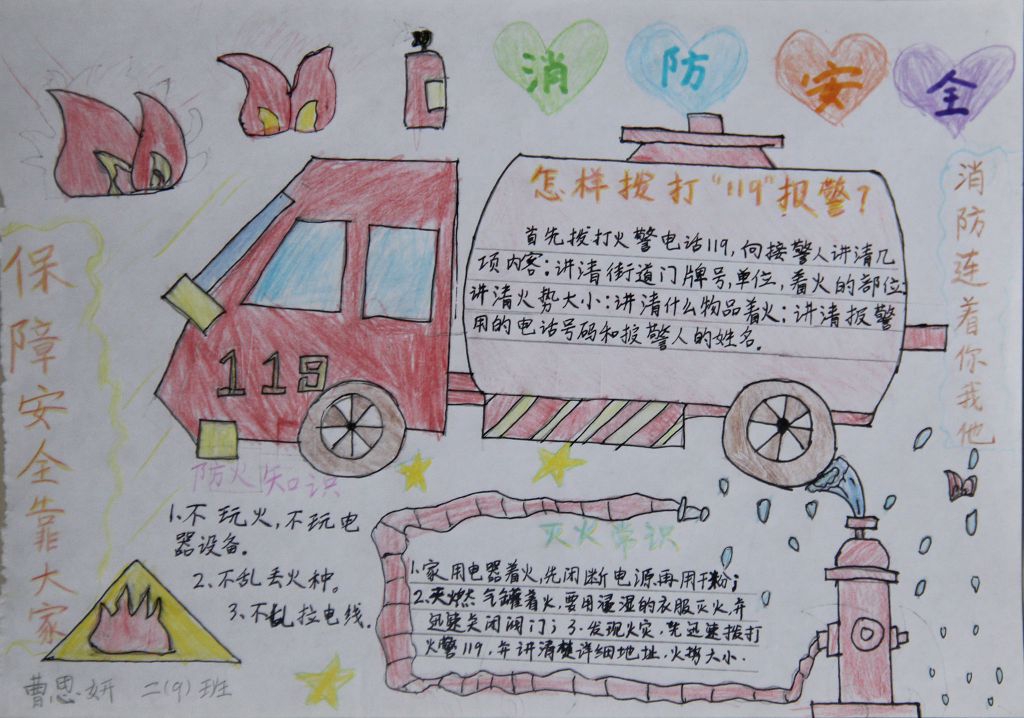 消防安全
怎样拨打“119”报警？
首先拨打火警电话119，向接警人讲清几
项内容：讲清街道门牌号，单位，着火的部位
讲清火势大小：讲清什么物品着火：讲清报警
用的电话号码和报警人的姓名。
消防连着你我他
保障安全靠大家
119
防火知识
1.不玩火，不玩电
器设备。
2.不乱丢火种。
3.不乱拉电线。
灭火常识
1.家用电器着火，先闭断电源再用干粉；
2.天燃气罐着火，要用温湿的衣服灭火，并
迅速关闭阀门；3.发现火灾，先迅速拨打
火警119，并讲清楚详细地址，火势大小.
曹思妍 二（9）班